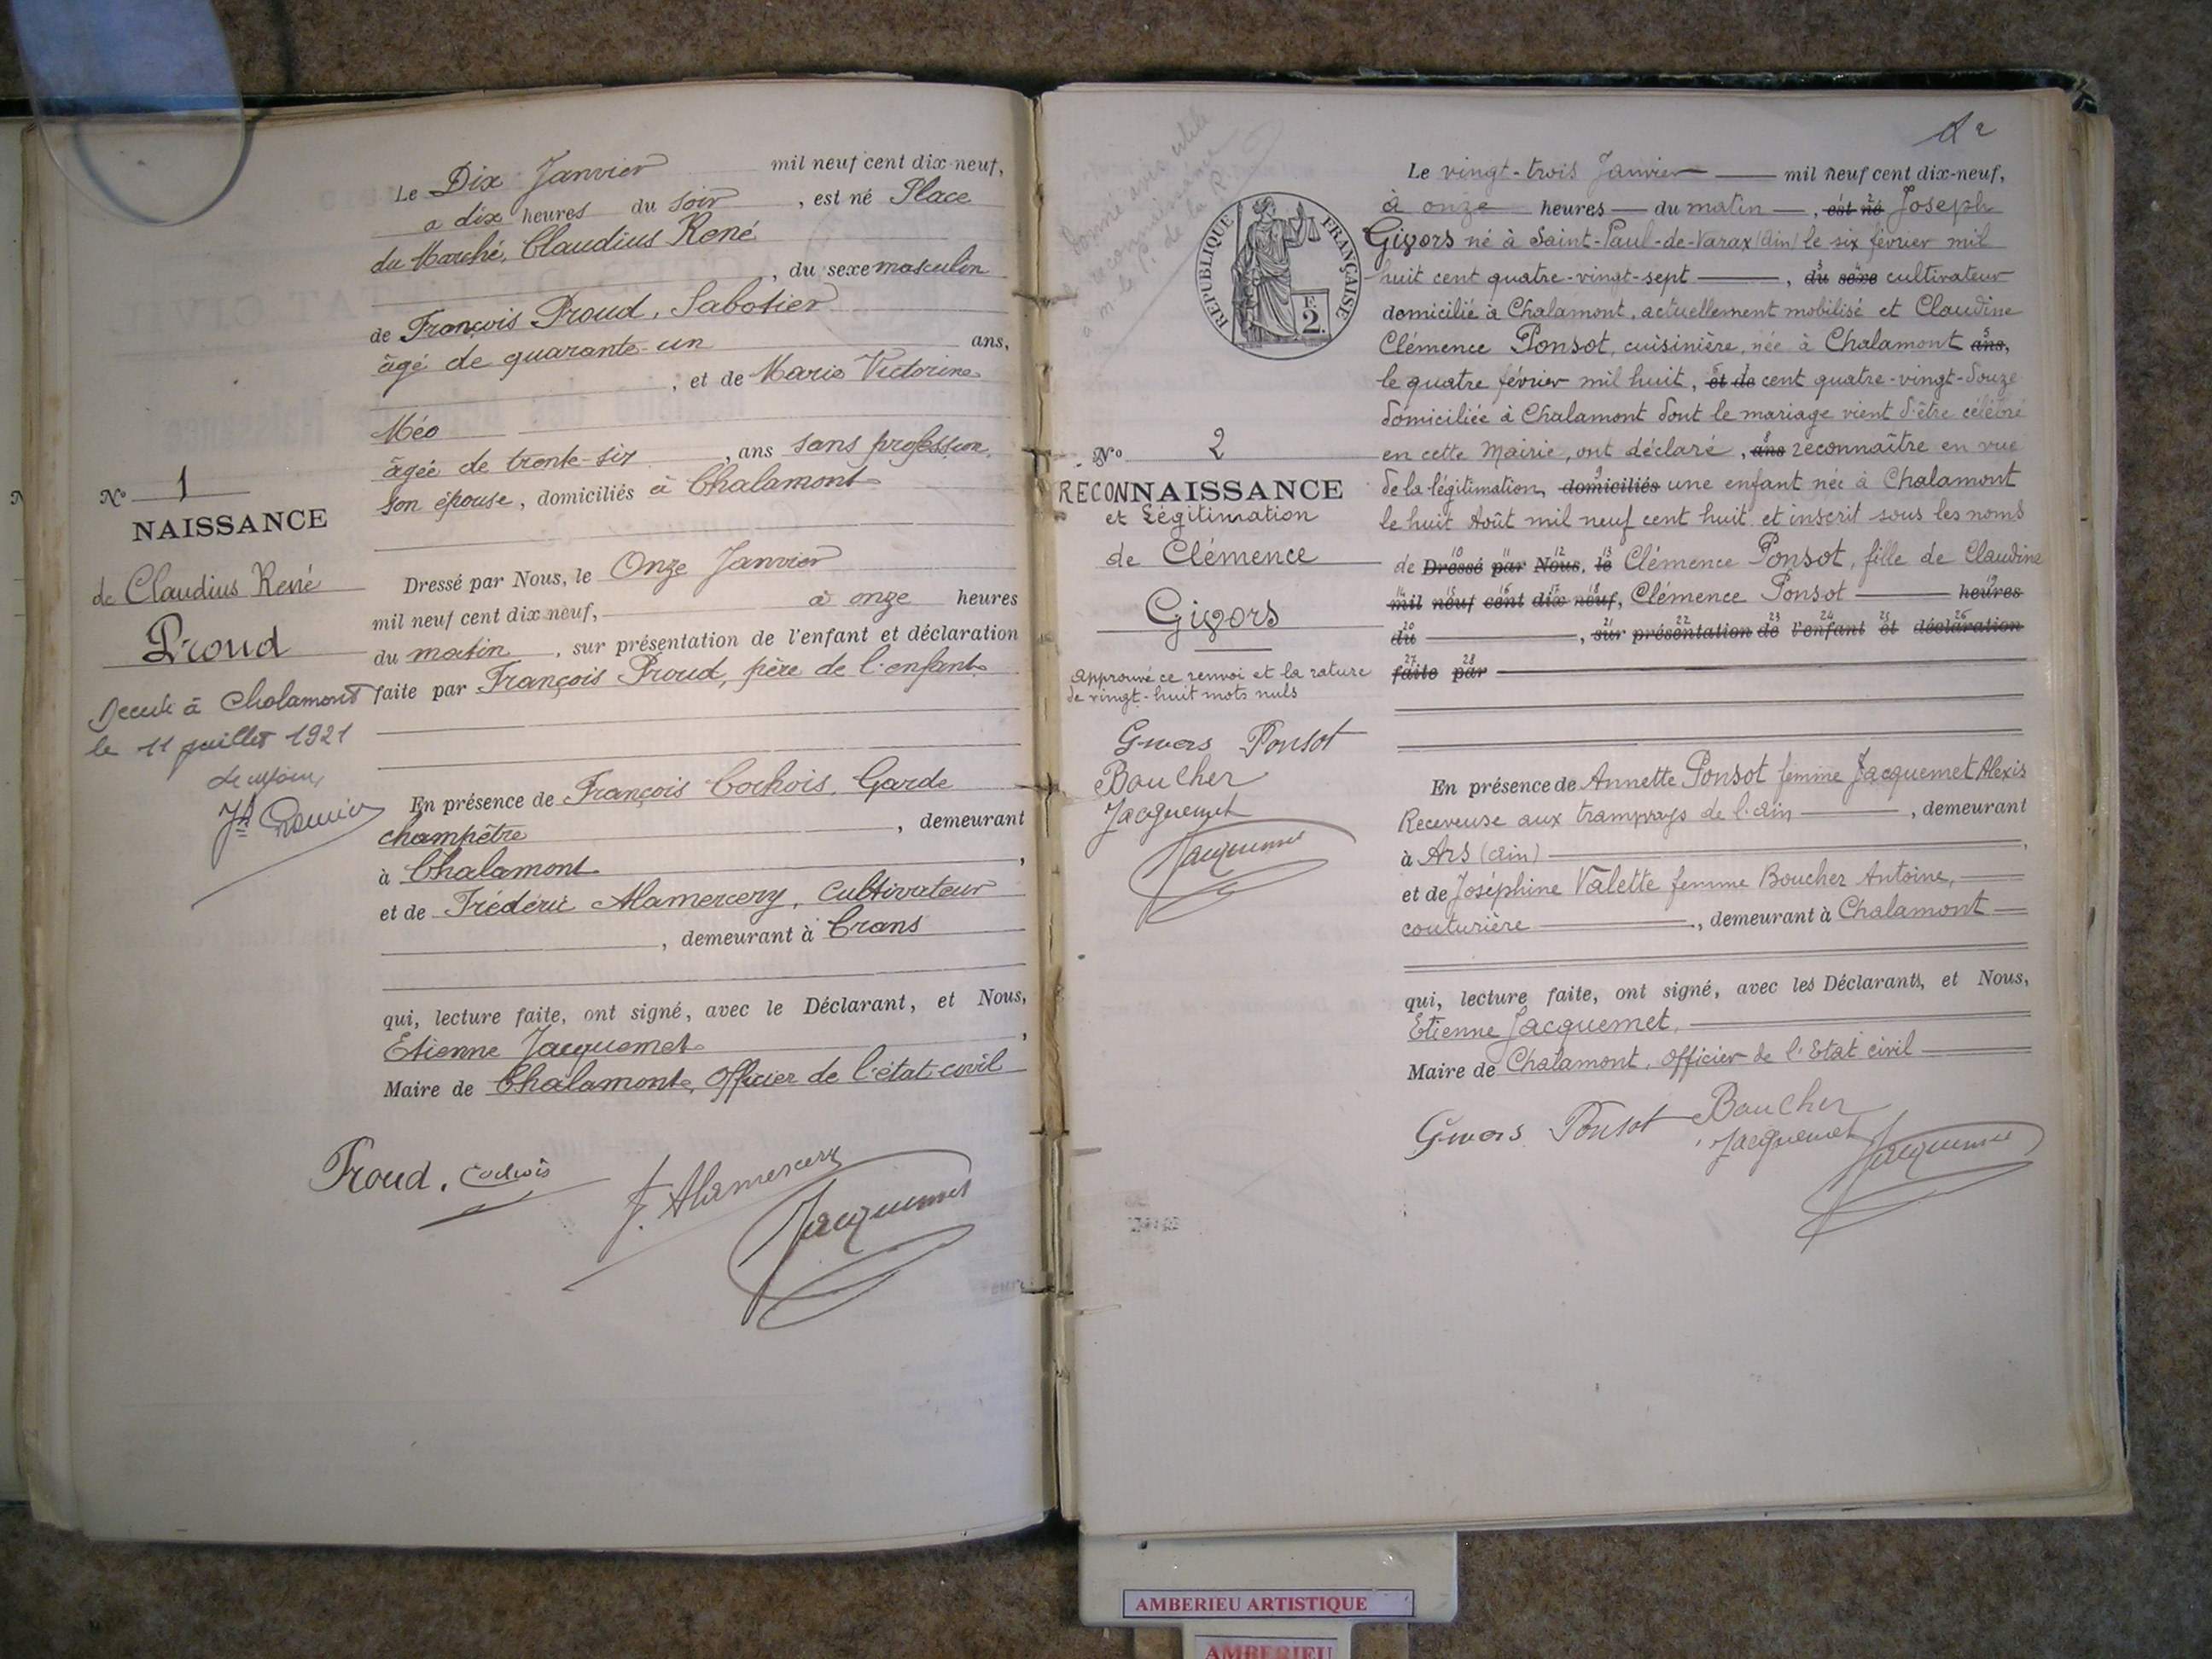 Le Dix Janvier mil neuf cent dix-neuf,
a dix heures du soir, est né Place
du Marché, Claudius René
, du sexe masculin
de François Proud, Sabotier
âgé de quarante-un ans,
, et de Marie Victorine
Méo
âgée de trente-six, ans sans profession,
son épouse, domiciliés à Chalamont
N° 1
NAISSANCE
de Claudius René
Proud
Décédé à Chalamont
le 11 juillet 1921
Dressé par Nous, le Onze Janvier
mil neuf cent dix neuf, à onze heures
du matin, sur présentation de l'enfant et déclaration
faite par François Proud, père de l'enfant
En présence de François Cochois, Garde
champêtre, demeurant
à Chalamont,
et de Frédéric Alamercery, cultivateur
, demeurant à Crans
qui, lecture faite, ont signé, avec le Déclarant, et Nous,
Etienne Jacquemet,
Maire de Chalamont, Officier de l'état-civil
Proud. Cochois
F. Alamercery
Jacquemet
2
REPUBLIQUE FRANÇAISE
F.
2.
Le vingt-trois Janvier mil neuf cent dix-neuf,
à onze heures du matin, est né Joseph
Givors né à Saint-Paul-de-Varax (Ain) le six février mil
huit cent quatre-vingt-sept, du sexe cultivateur
domicilié à Chalamont, actuellement mobilisé et Claudine
Clémence Ponsot, cuisinière, née à Chalamont ans,
le quatre février mil huit, et de cent quatre-vingt-douze
domiciliée à Chalamont dont le mariage vient d'être célébré
en cette Mairie, ont déclaré, ans reconnaître en vue
de la légitimation, domiciliés une enfant née à Chalamont
le huit Août mil neuf cent huit et inscrit sous les noms
de Dressé par Nous, le Clémence Ponsot, fille de Claudine
mil neuf cent dix neuf, Clémence Ponsot heures
du, sur présentation de l'enfant et déclaration
faite par
N° 2
RECONNAISSANCE
et Légitimation
de Clémence
Givors
Approuvé ce renvoi et la rature
de vingt-huit mots nuls
Givors Ponsot
Boucher
Jacquemet
Jacquemet
En présence de Annette Ponsot femme Jacquemet Alexis
Receveuse aux tramways de l'Ain, demeurant
à Ars (Ain),
et de Joséphine Valette femme Boucher Antoine,
couturière, demeurant à Chalamont
qui, lecture faite, ont signé, avec les Déclarants, et Nous,
Etienne Jacquemet,
Maire de Chalamont, Officier de l'Etat civil
Givors Ponsot Boucher
Jacquemet Jacquemet
AMBERIEU ARTISTIQUE
AMBERIEU